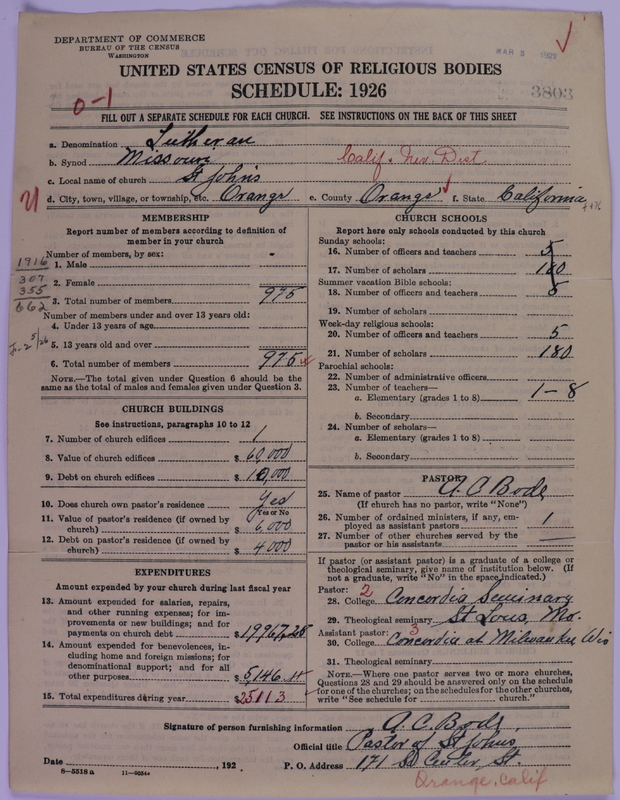 DEPARTMENT OF COMMERCE
BUREAU OF THE CENSUS
WASHINGTON
MAR 3
3803
UNITED STATES CENSUS OF RELIGIOUS BODIES
SCHEDULE: 1926
0-1
FILL OUT A SEPARATE SCHEDULE FOR EACH CHURCH. SEE INSTRUCTIONS ON THE BACK OF THIS SHEET
a. Denomination Lutheran
b. Synod Missouri Calif. Nev. Dist.
c. Local name of church St Johns
d. City, town, village, or township, etc. Orange e. County Orange f. State California
MEMBERSHIP
Report number of members according to definition of
member in your church
Number of members, by sex:
1916
1. Male
307
2. Female
355
3. Total number of members 975
662
Number of members under and over 13 years old:
4. Under 13 years of age
5. 13 years old and over
6. Total number of members 975
NOTE.—The total given under Question 6 should be the
same as the total of males and females given under Question 3.
CHURCH BUILDINGS
See instructions, paragraphs 10 to 12
7. Number of church edifices 1
8. Value of church edifices $ 60,000
9. Debt on church edifices $ 10,000
10. Does church own pastor's residence Yes
Yes or No
11. Value of pastor's residence (if owned by
church) $ 6,000
12. Debt on pastor's residence (if owned by
church) $ 4000
EXPENDITURES
Amount expended by your church during last fiscal year
13. Amount expended for salaries, repairs,
and other running expenses; for im-
provements or new buildings; and for
payments on church debt $ 19967.28
14. Amount expended for benevolences, in-
cluding home and foreign missions; for
denominational support; and for all
other purposes $ 5,146.11
15. Total expenditures during year $ 25113
CHURCH SCHOOLS
Report here only schools conducted by this church
Sunday schools:
16. Number of officers and teachers 5
17. Number of scholars 180
Summer vacation Bible schools:
18. Number of officers and teachers 5
19. Number of scholars
Week-day religious schools:
20. Number of officers and teachers 5
21. Number of scholars 180
Parochial schools:
22. Number of administrative officers
23. Number of teachers—
a. Elementary (grades 1 to 8) 1 - 8
b. Secondary
24. Number of scholars—
a. Elementary (grades 1 to 8)
b. Secondary
PASTOR
25. Name of pastor A. C. Bode
(If church has no pastor, write "None")
26. Number of ordained ministers, if any, em-
ployed as assistant pastors 1
27. Number of other churches served by the
pastor or his assistants
If pastor (or assistant pastor) is a graduate of a college or
theological seminary, give name of institution below. (If
not a graduate, write "No" in the space indicated.)
Pastor: 2
28. College Concordia Seminary
29. Theological seminary St Louis, Mo.
Assistant pastor: 3
30. College Concordia at Milwaukee Wis
31. Theological seminary
NOTE.—Where one pastor serves two or more churches,
Questions 28 and 29 should be answered only on the schedule
for one of the churches; on the schedules for the other churches,
write "See schedule for church."
Signature of person furnishing information A. C. Bode
Official title Pastor of St Johns
Date , 192 P. O. Address 171 So Center St.
8-5518 a
Orange, Calif